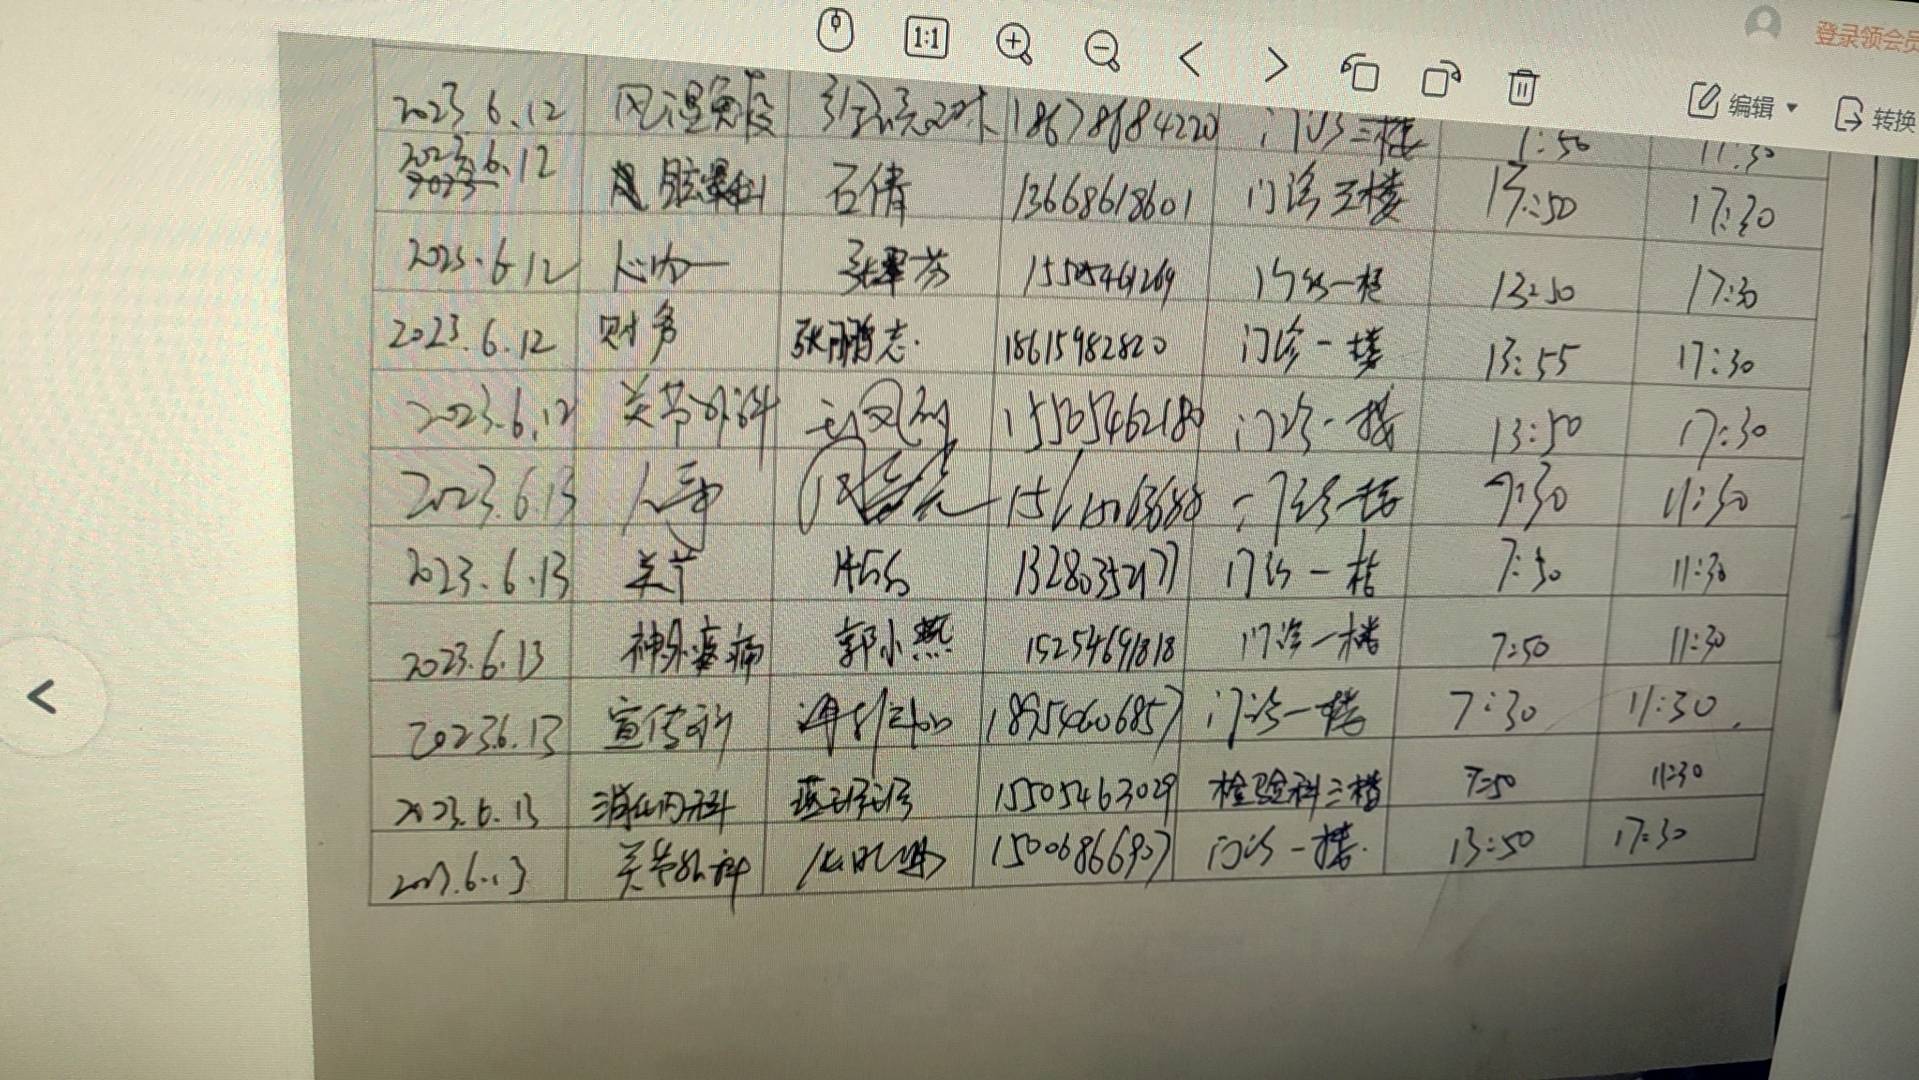 1:1
登录领会员
编辑
转换
2023.6.12 风湿免疫 18678684220 门诊三楼 7:50 11:30
2023.6.12 石倩 13668618601 门诊三楼 13:50 17:30
2023.6.12 心内一 张翠芬 门诊一楼 13:50 17:30
2023.6.12 财务 张鹏志 18615982820 门诊一楼 13:55 17:30
2023.6.12 关节外科 15505462180 门诊一楼 13:50 17:30
2023.6.13 人事 门诊一楼 7:30 11:30
2023.6.13 关节 门诊一楼 7:50 11:30
2023.6.13 神外疼痛 郭小燕 15254691818 门诊一楼 7:50 11:30
2023.6.13 宣传 18954606857 门诊一楼 7:30 11:30
2023.6.13 消化内科 15505463029 检验科三楼 7:50 11:30
2023.6.13 关节外科 15006866907 门诊一楼 13:50 17:30